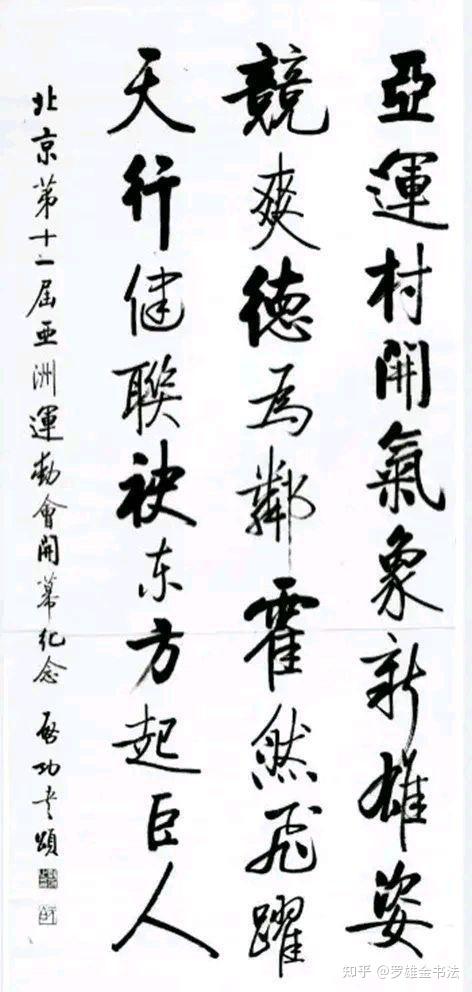 亞運村開氣象新雄姿
競爽德為鄰霍然飛躍
天行健聯袂东方起巨人
北京第十一屆亞洲運動會開幕纪念 啓功書頌
知乎 @罗雄金书法